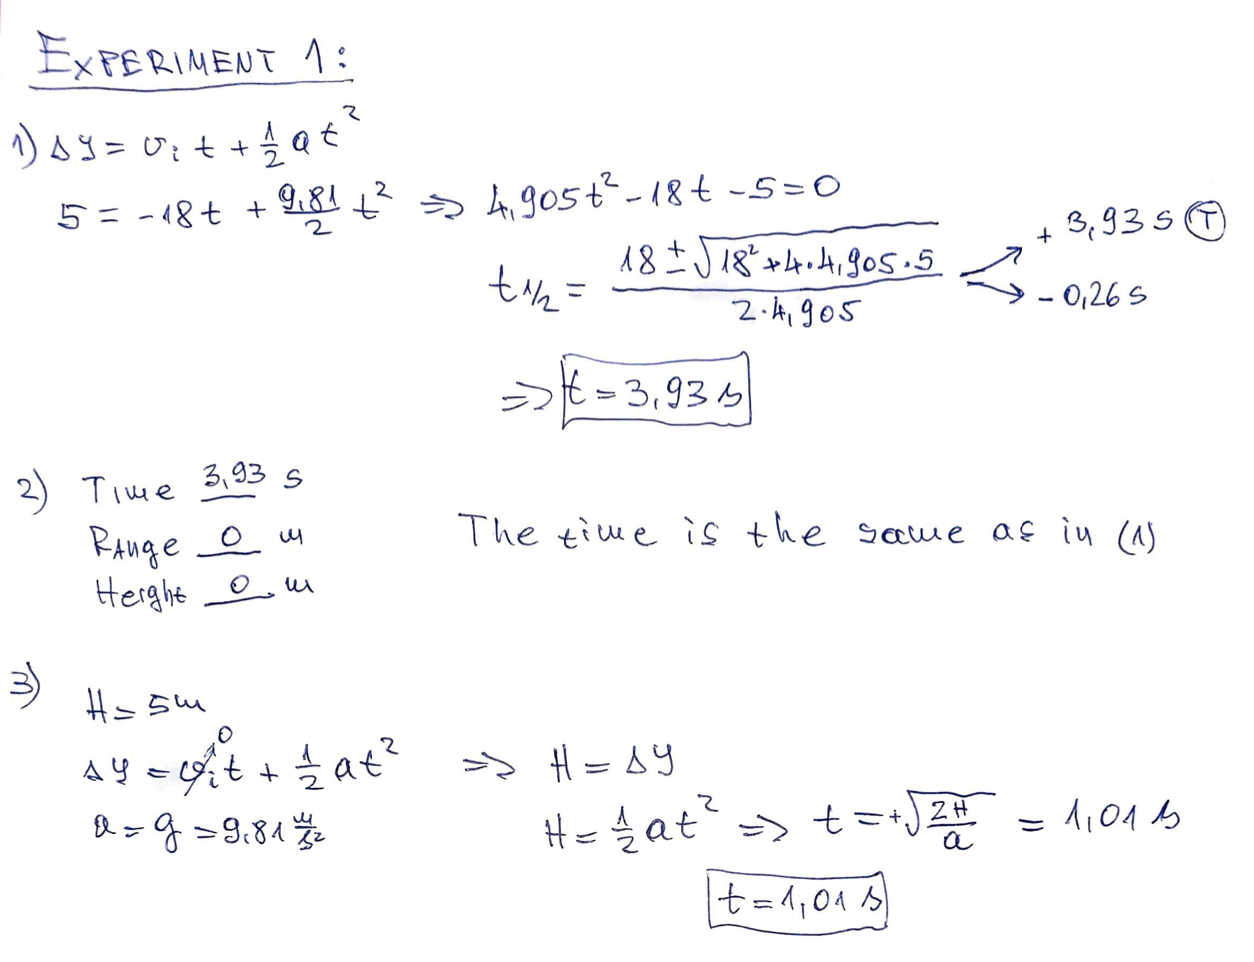 EXPERIMENT 1:
1) Δy = vᵢt + 1/2 at²
5 = -18t + 9,81/2 t² ⇒ 4,905t² - 18t - 5 = 0
t1/2 = (18 ± √(18² + 4·4,905·5)) / (2·4,905)
+ 3,93 s (T)
- 0,26 s
⇒ t = 3,93 s
2) Time 3,93 s
Range 0 m
Height 0 m
The time is the same as in (1)
3) H = 5m
Δy = vᵢt + 1/2 at² ⇒ H = Δy
0
a = g = 9,81 m/s²
H = 1/2 at² ⇒ t = +√(2H/a) = 1,01 s
t = 1,01 s